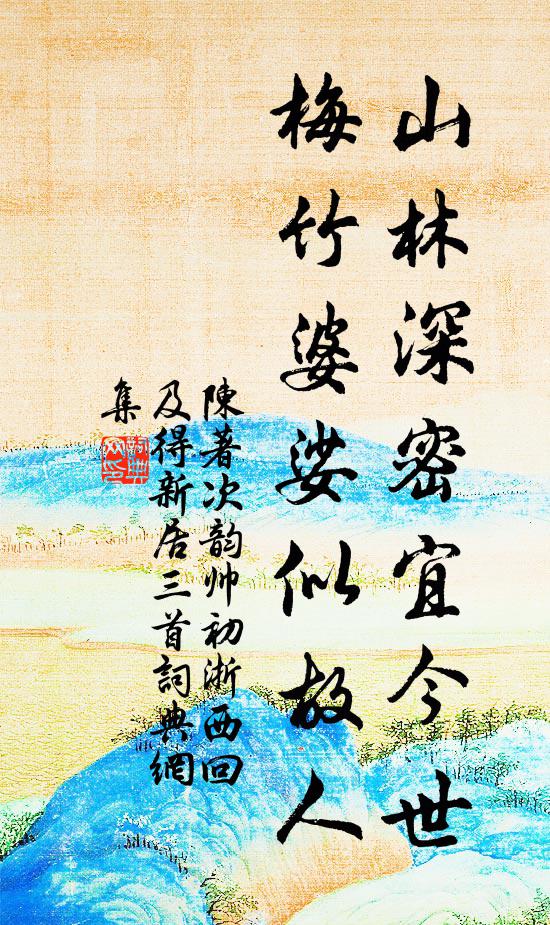 山林深密宜今世
梅竹婆娑似故人
陳著次韵帅初浙西回
及得新居三首詞典網
集